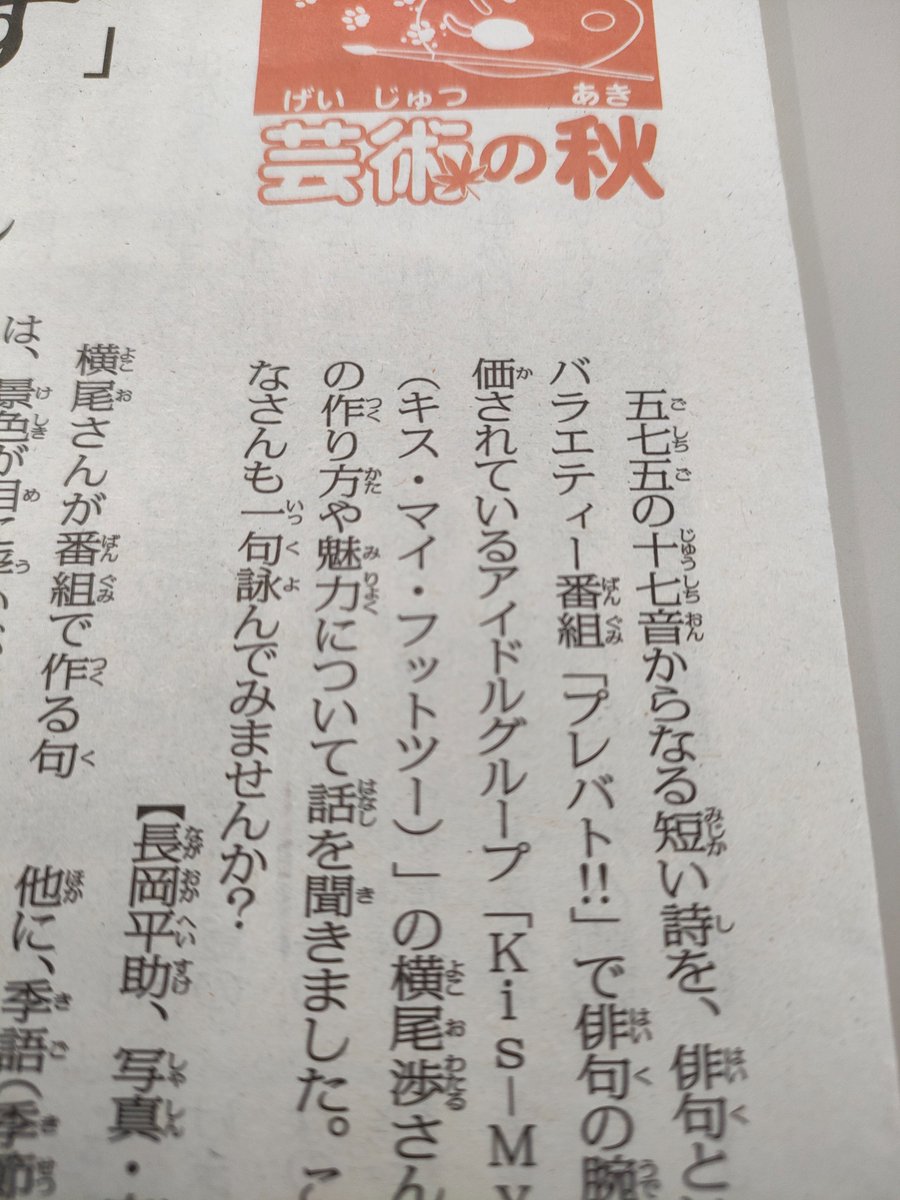 す」
芸術の秋
五七五の十七音からなる短い詩を、俳句と
バラエティー番組「プレバト!!」で俳句の腕
価されているアイドルグループ「Kis-My
(キス・マイ・フットツー)」の横尾渉さん
の作り方や魅力について話を聞きました。こ
なさんも一句詠んでみませんか?
【長岡平助、写真・
横尾さんが番組で作る句
は、景色が目に浮
他に、季語(季節